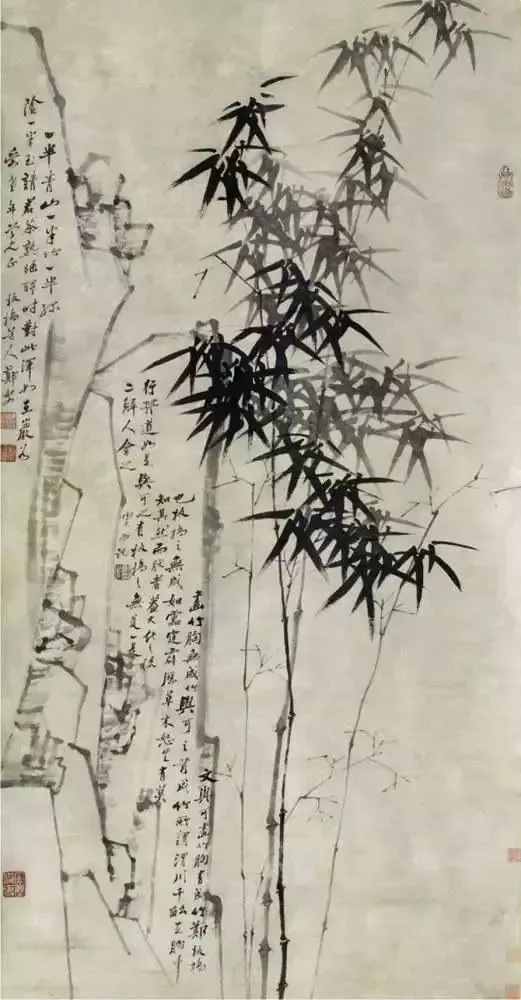 一半青山一半竹一半綠
陰一半玉請君茶熟睡醒時對此渾如在巖谷
年學人正 板橋道人鄭燮
文與可畫竹胸有成竹鄭板橋
畫竹胸無成竹與可之有成竹所謂渭川千畝在胸中
也板橋之無成如雷霆霹靂草木怒生有莫
知其然而然者蓋大化之流
行其道如是與可之有板橋之無是一是
二解人會之 記